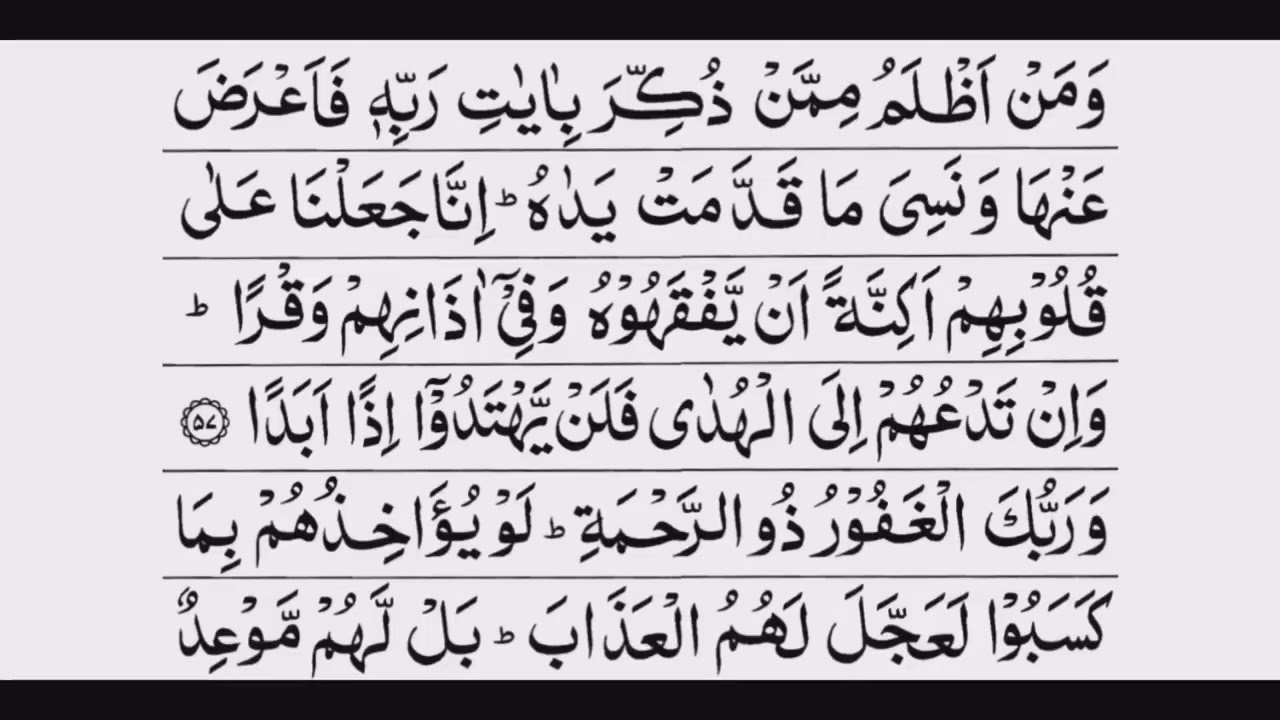 وَمَنۡ اَظۡلَمُ مِمَّنۡ ذُكِّرَ بِاٰيٰتِ رَبِّهٖ فَاَعۡرَضَ
عَنۡهَا وَنَسِىَ مَا قَدَّمَتۡ يَدٰهُ‌ ؕ اِنَّا جَعَلۡنَا عَلٰى
قُلُوۡبِهِمۡ اَكِنَّةً اَنۡ يَّفۡقَهُوۡهُ وَفِىۡۤ اٰذَانِهِمۡ وَقۡرًا‌ ؕ
وَاِنۡ تَدۡعُهُمۡ اِلَى الۡهُدٰى فَلَنۡ يَّهۡتَدُوۡۤا اِذًا اَبَدًا ۵۷
وَرَبُّكَ الۡغَفُوۡرُ ذُو الرَّحۡمَةِ‌ ؕ لَوۡ يُؤَاخِذُهُمۡ بِمَا
كَسَبُوۡا لَعَجَّلَ لَهُمُ الۡعَذَابَ‌ ؕ بَلۡ لَّهُمۡ مَّوۡعِدٌ